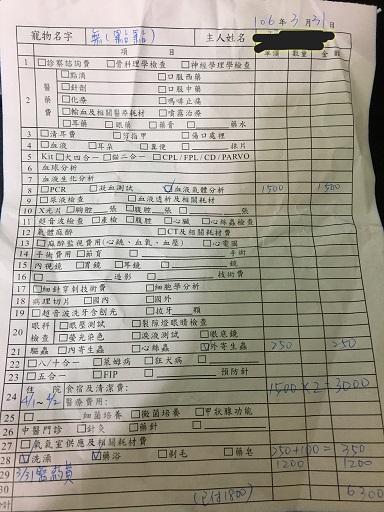 106年3月31日
寵物名字 無(點點) 主人姓名
項目 單價 數量 金額
1 □診察諮詢費 □骨科理學檢查 □神經學理學檢查
2 醫藥費 □點滴 □口服西藥
□針劑 □口服中藥
□化療 □嗎啡止痛
□輸血及相關醫療耗材 □噴霧治療
□耳藥 □眼藥 □藥膏 藥水
3 □清耳費 □穿指甲 □傷口處理
4 □血液 □耳朵 □糞便 抹片
5 Kit□犬四合一 □貓二合一 □CPL/FPL/CD/PARVO
6 血球分析
7 血液生化分析
8 □PCR □凝血測試 ☑血液氣體分析 1500 1500
9 □尿液檢查 □血液透析及相關耗材
10 X光片□胸腔 張 □腹腔 張 張
11 超音波檢查 □產檢 □腹腔 □心臟 □心絲蟲檢查
12 氣體麻醉 □CT及相關耗材費
13 □麻醉監視費用(心跳、血氧、血壓) □心電圖
14 手術費用□節育 手術
15 內視鏡 □胃鏡 □耳鏡 鏡
16 □ 造影 技術費
17 □細針穿刺技術費 □細胞學分析
18 病理切片 □國內 □國外
19 □超音波洗牙含刨光 □拔牙 顆
20 眼科檢查 □眼壓測試 □裂隙燈眼睛檢查
□螢光染色 □淚液測試 □眼底鏡
21 驅蟲 □內寄生蟲 □心絲蟲 ☑外寄生蟲 250 250
22 □八/十合一 □萊姆病 □狂犬病
23 □五合一 □FIP 預防針
24 住院 食宿及清潔費: 1500×2=3000
4/1~4/2 醫療費用:
25 □ 細菌培養 □黴菌培養 □甲狀腺功能
26 中醫門診 □針灸 □藥針
27 □氧氣室供應及相關耗材費
28 ☑洗澡 ☑藥浴 □剃毛 □藥皂 250+100= 350
29 3/31 1200 1200
30 (已付1800) 6300
合計